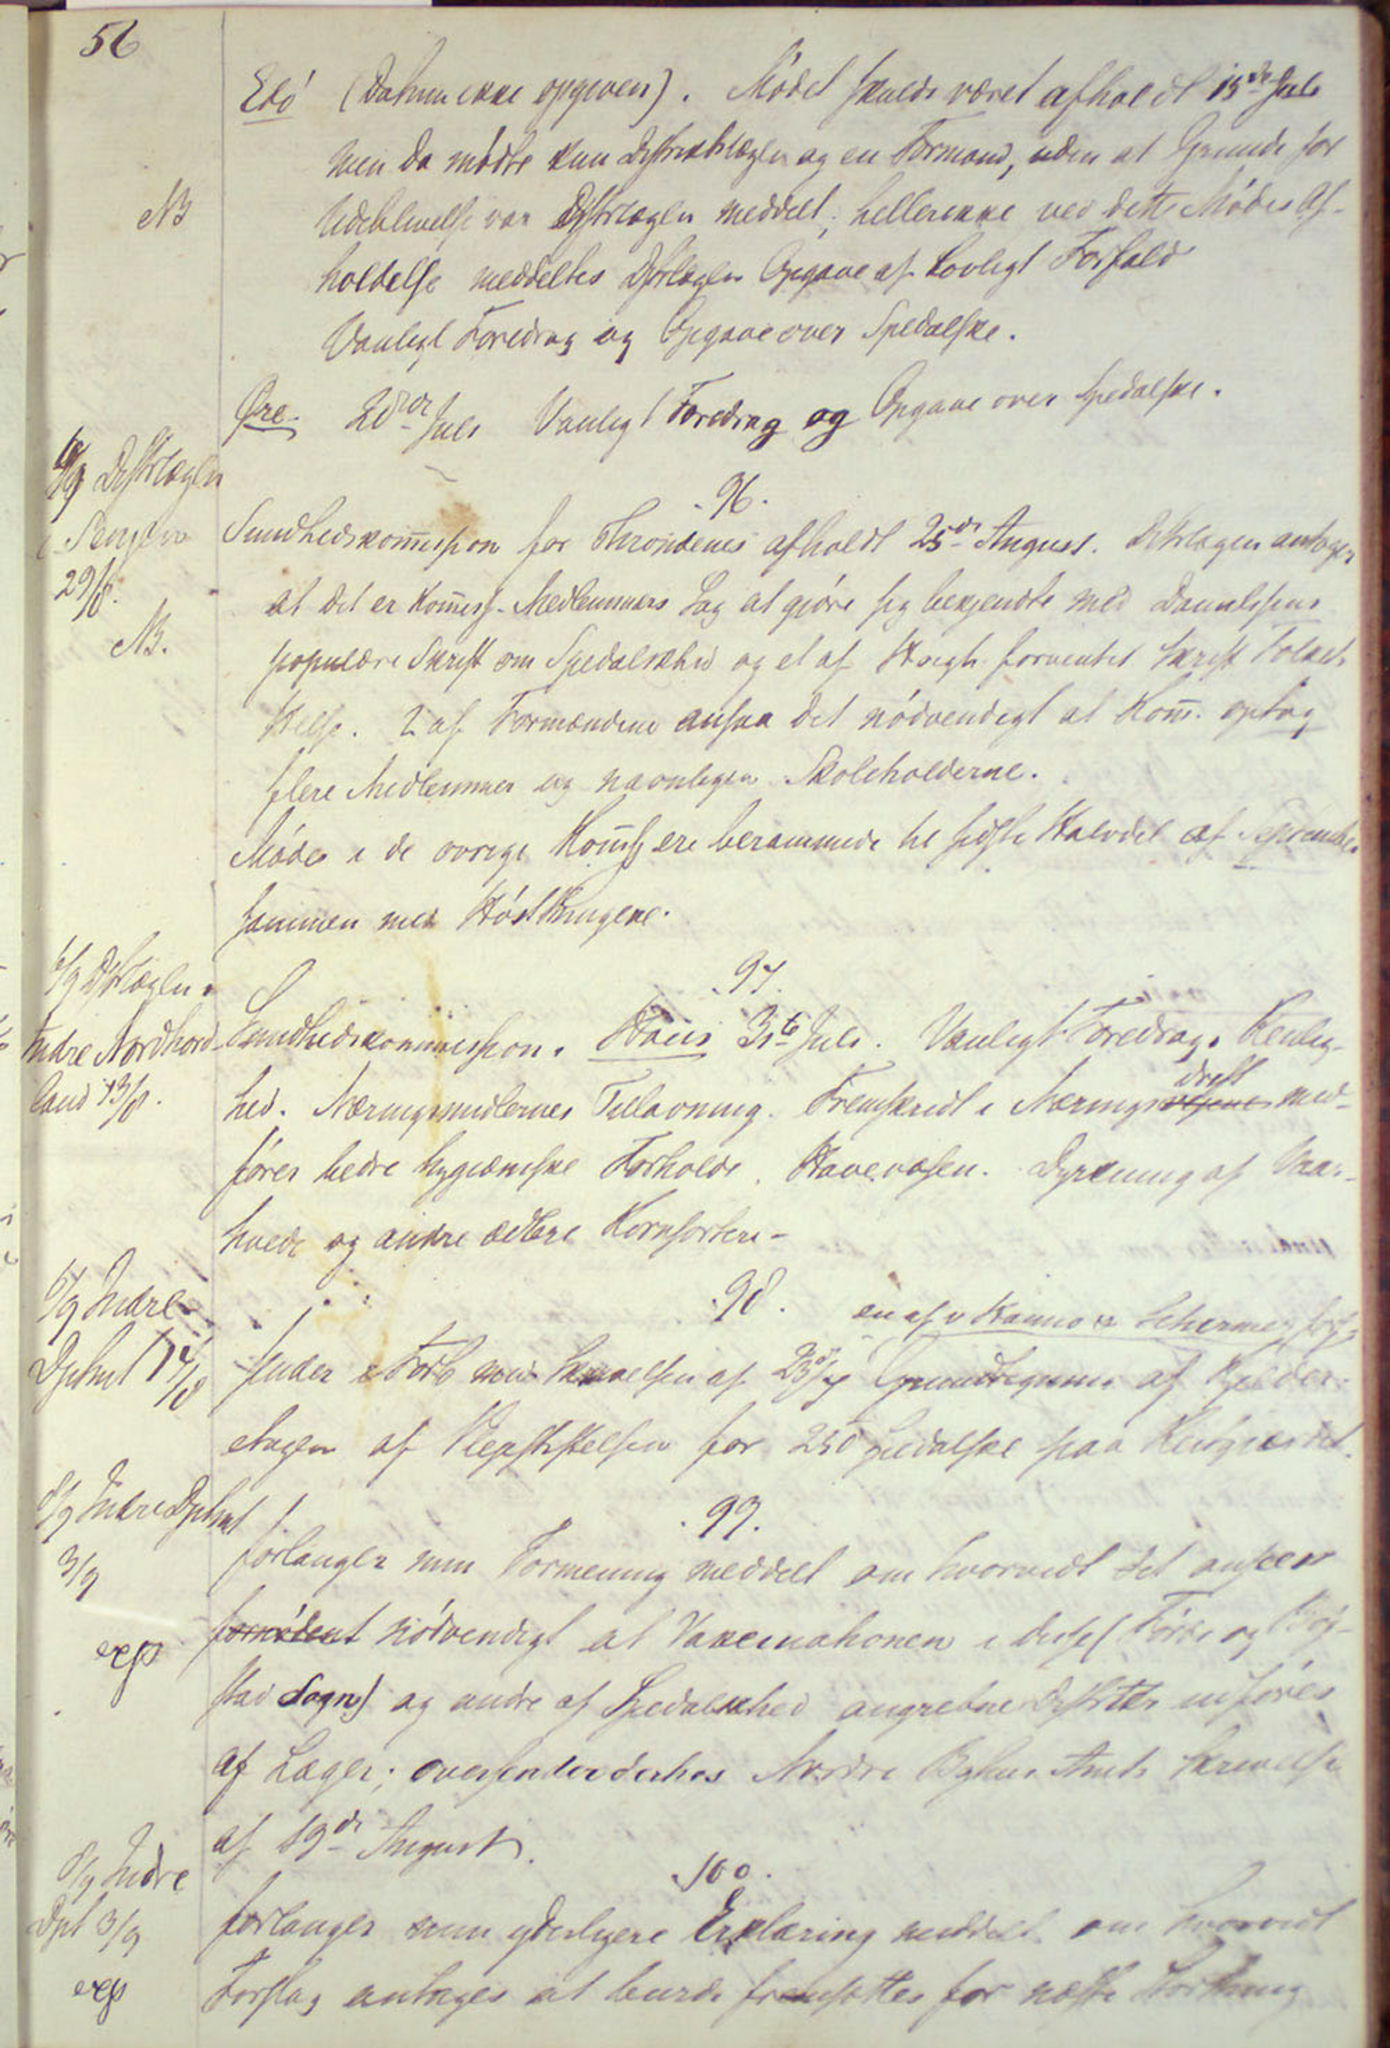 56
Edö (Datum ikke opgiven). Mödet skulde været afholdt 15de Juli
men da mödte kun Distriktslægen og en Formand, uden at Grunde for
NB
Udeblivelse var Distrlægen meddelt; hellerikke ved dette Mödes Af-
holdelse meddeltes Distrlægen Opgave af Lovligt Forfald
Vanligt Foredrag og Opgave over Spedalske.
Øre. 28de Juli Vanligt Foredrag og Opgave over Spedalske.
Distrlægen
96.
i Senjen
Sundhedskommission for Throndenes afholdt 25de August. Distrlægen antager
29/8.
at det er Kommiss. Medlemmers Sag at gjöre sig bekjendte med Danielssens
NB.
populære Skrift om Spedalskhed og et af Hoegh forventet Skrift Folkets
Helse. 2 af Formændene ansaa det nödvendigt at Komm. optog
flere Medlemmer og navnligen Skoleholderne.
Möder i de övrige Kommiss ere berammede til sidste Halvdel af September
sammen med Höstthingene.
6/9 Distrlægen i
97.
Indre Nordhord-
Sundhedskommission. Haus 31te Juli. Vanligt Foredrag. Renlig-
land 13/8.
hed. Næringsmidlernes Tillavning. Fremskridt i Næringsveiene drift med-
förer bedre hygiæniske Forholde. Havevæsen. Dyrkning af Vaar-
hvede og andre ædlere Kornsorter.
6/9 Indre
98.
en af v Hanno &amp; Schirmer
Dptmt 14/8
sender i Forb med Skrivelsen af 23de/7 Grundtegninger af Kjelder-
etagen af Pleiestiftelsen for 250 Spedalske paa
8/9 Indre Dptmt
99.
3/9
forlanger min Formening meddelt om hvorvidt det ansees
exp
fornödent nödvendigt at Vaccinationen i disse (Förde og
stad Sogn) og andre af Spedalskhed angrebne Distrikter udföres
af Læger; oversender derhos Nordre Bghus Amts Skrivelse
af 19de August.
8/9 Indre
100.
Dpt 3/9
forlanger min yderligere Erklæring meddelt om hvorvidt
exp
Forslag antages at burde fremsættes for næste Storthing